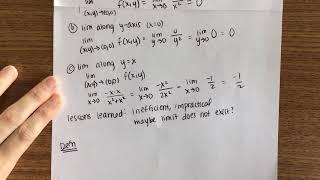 lim (x,y)→(0,0) f(x,y) = lim x→0 0/x² = 0
(b) lim along y-axis (x=0)
lim (x,y)→(0,0) f(x,y) = lim y→0 0/y² = lim y→0 0 = 0
(c) lim along y=x
lim (x,y)→(0,0) f(x,y)
= lim x→0 -x·x/x²+x² = lim x→0 -x²/2x² = lim x→0 -1/2 = -1/2
lessons learned: inefficient, impractical
maybe limit does not exist?
Defn